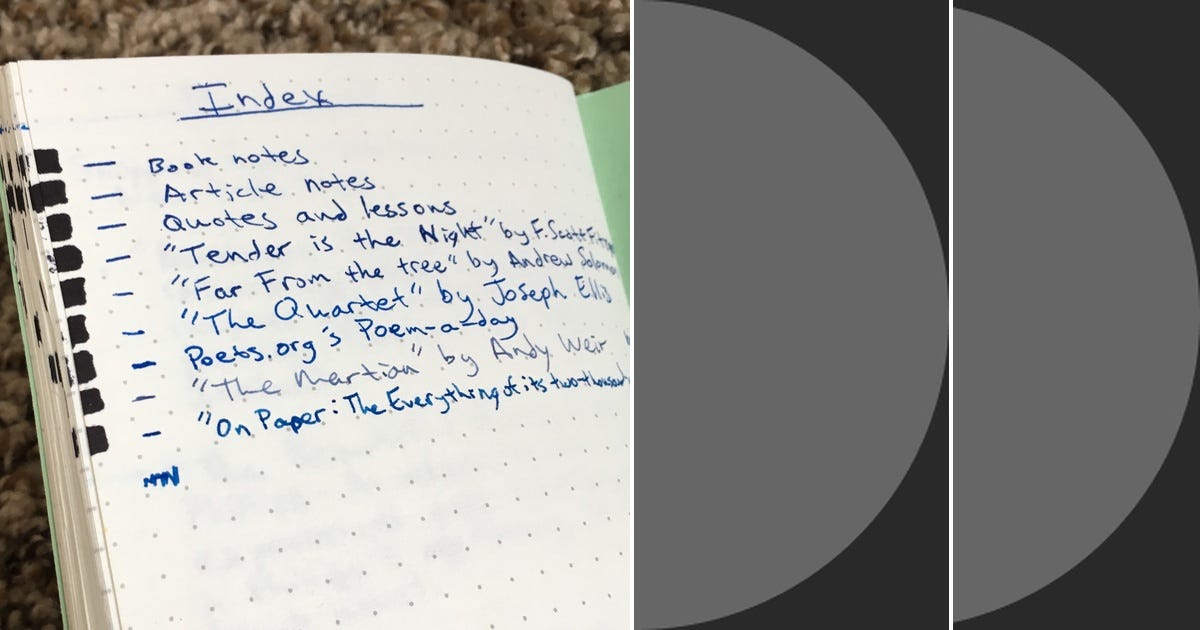 Index
- Book notes
- Article notes
- Quotes and lessons
- "Tender is the Night" by F. Scott
- "Far From the tree" by Andrew
- "The Quartet" by Joseph Ellis
- Poets.org's Poem-a-day
- "The Martian" by Andy Weir
- "On Paper: The Everything of its